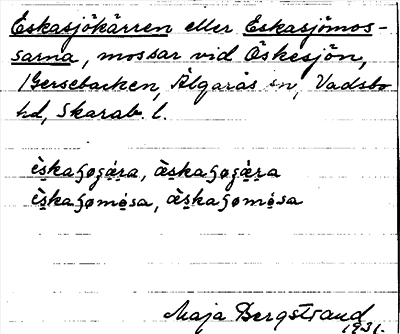 Eskasjökärren eller Eskasjömos-
sarna, mossar vid Öskesjön,
Gersebacken, Älgarås sn, Vadsbo
hd, Skarab. l.
èskaʂøgǽra, æ̀skaʂøgǽra
èskaʂømósa, æ̀skaʂømósa
Maja Bergstrand
1931.